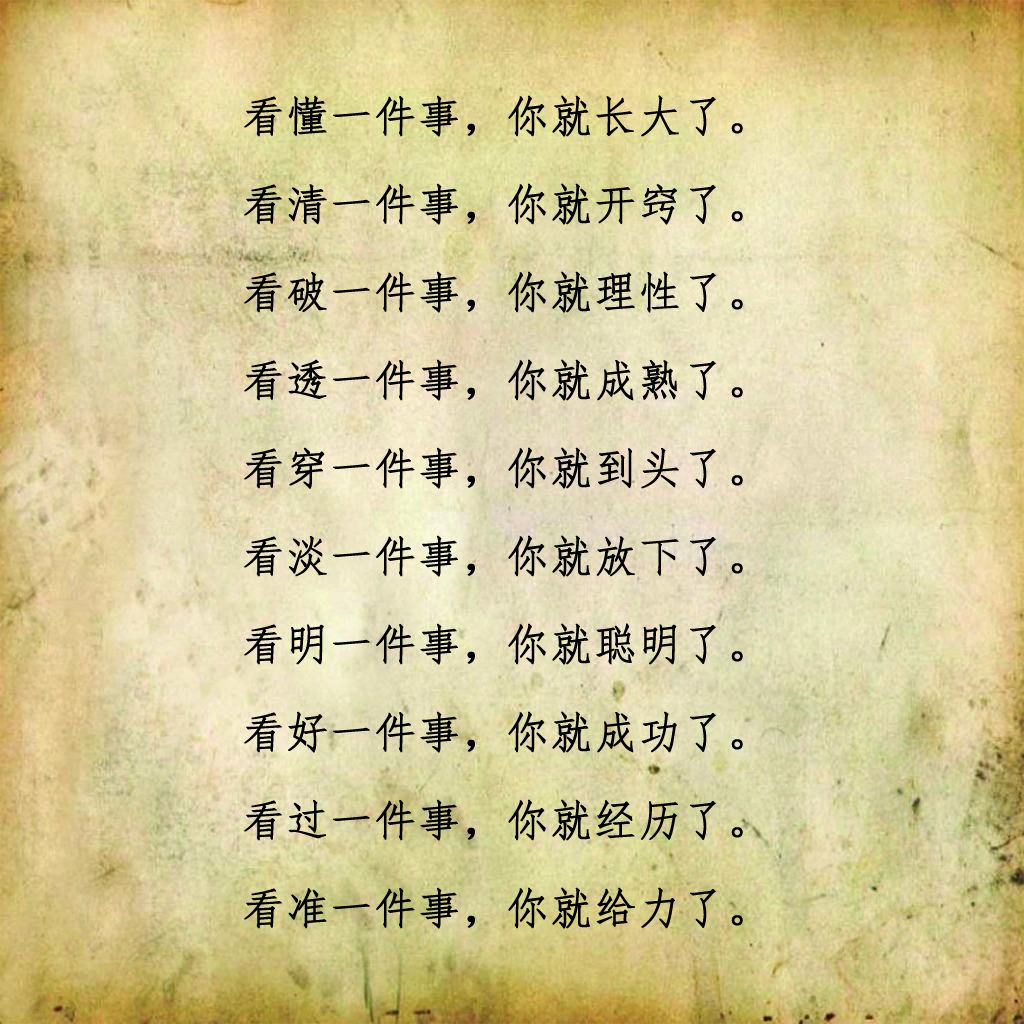 看懂一件事，你就长大了。
看清一件事，你就开窍了。
看破一件事，你就理性了。
看透一件事，你就成熟了。
看穿一件事，你就到头了。
看淡一件事，你就放下了。
看明一件事，你就聪明了。
看好一件事，你就成功了。
看过一件事，你就经历了。
看准一件事，你就给力了。